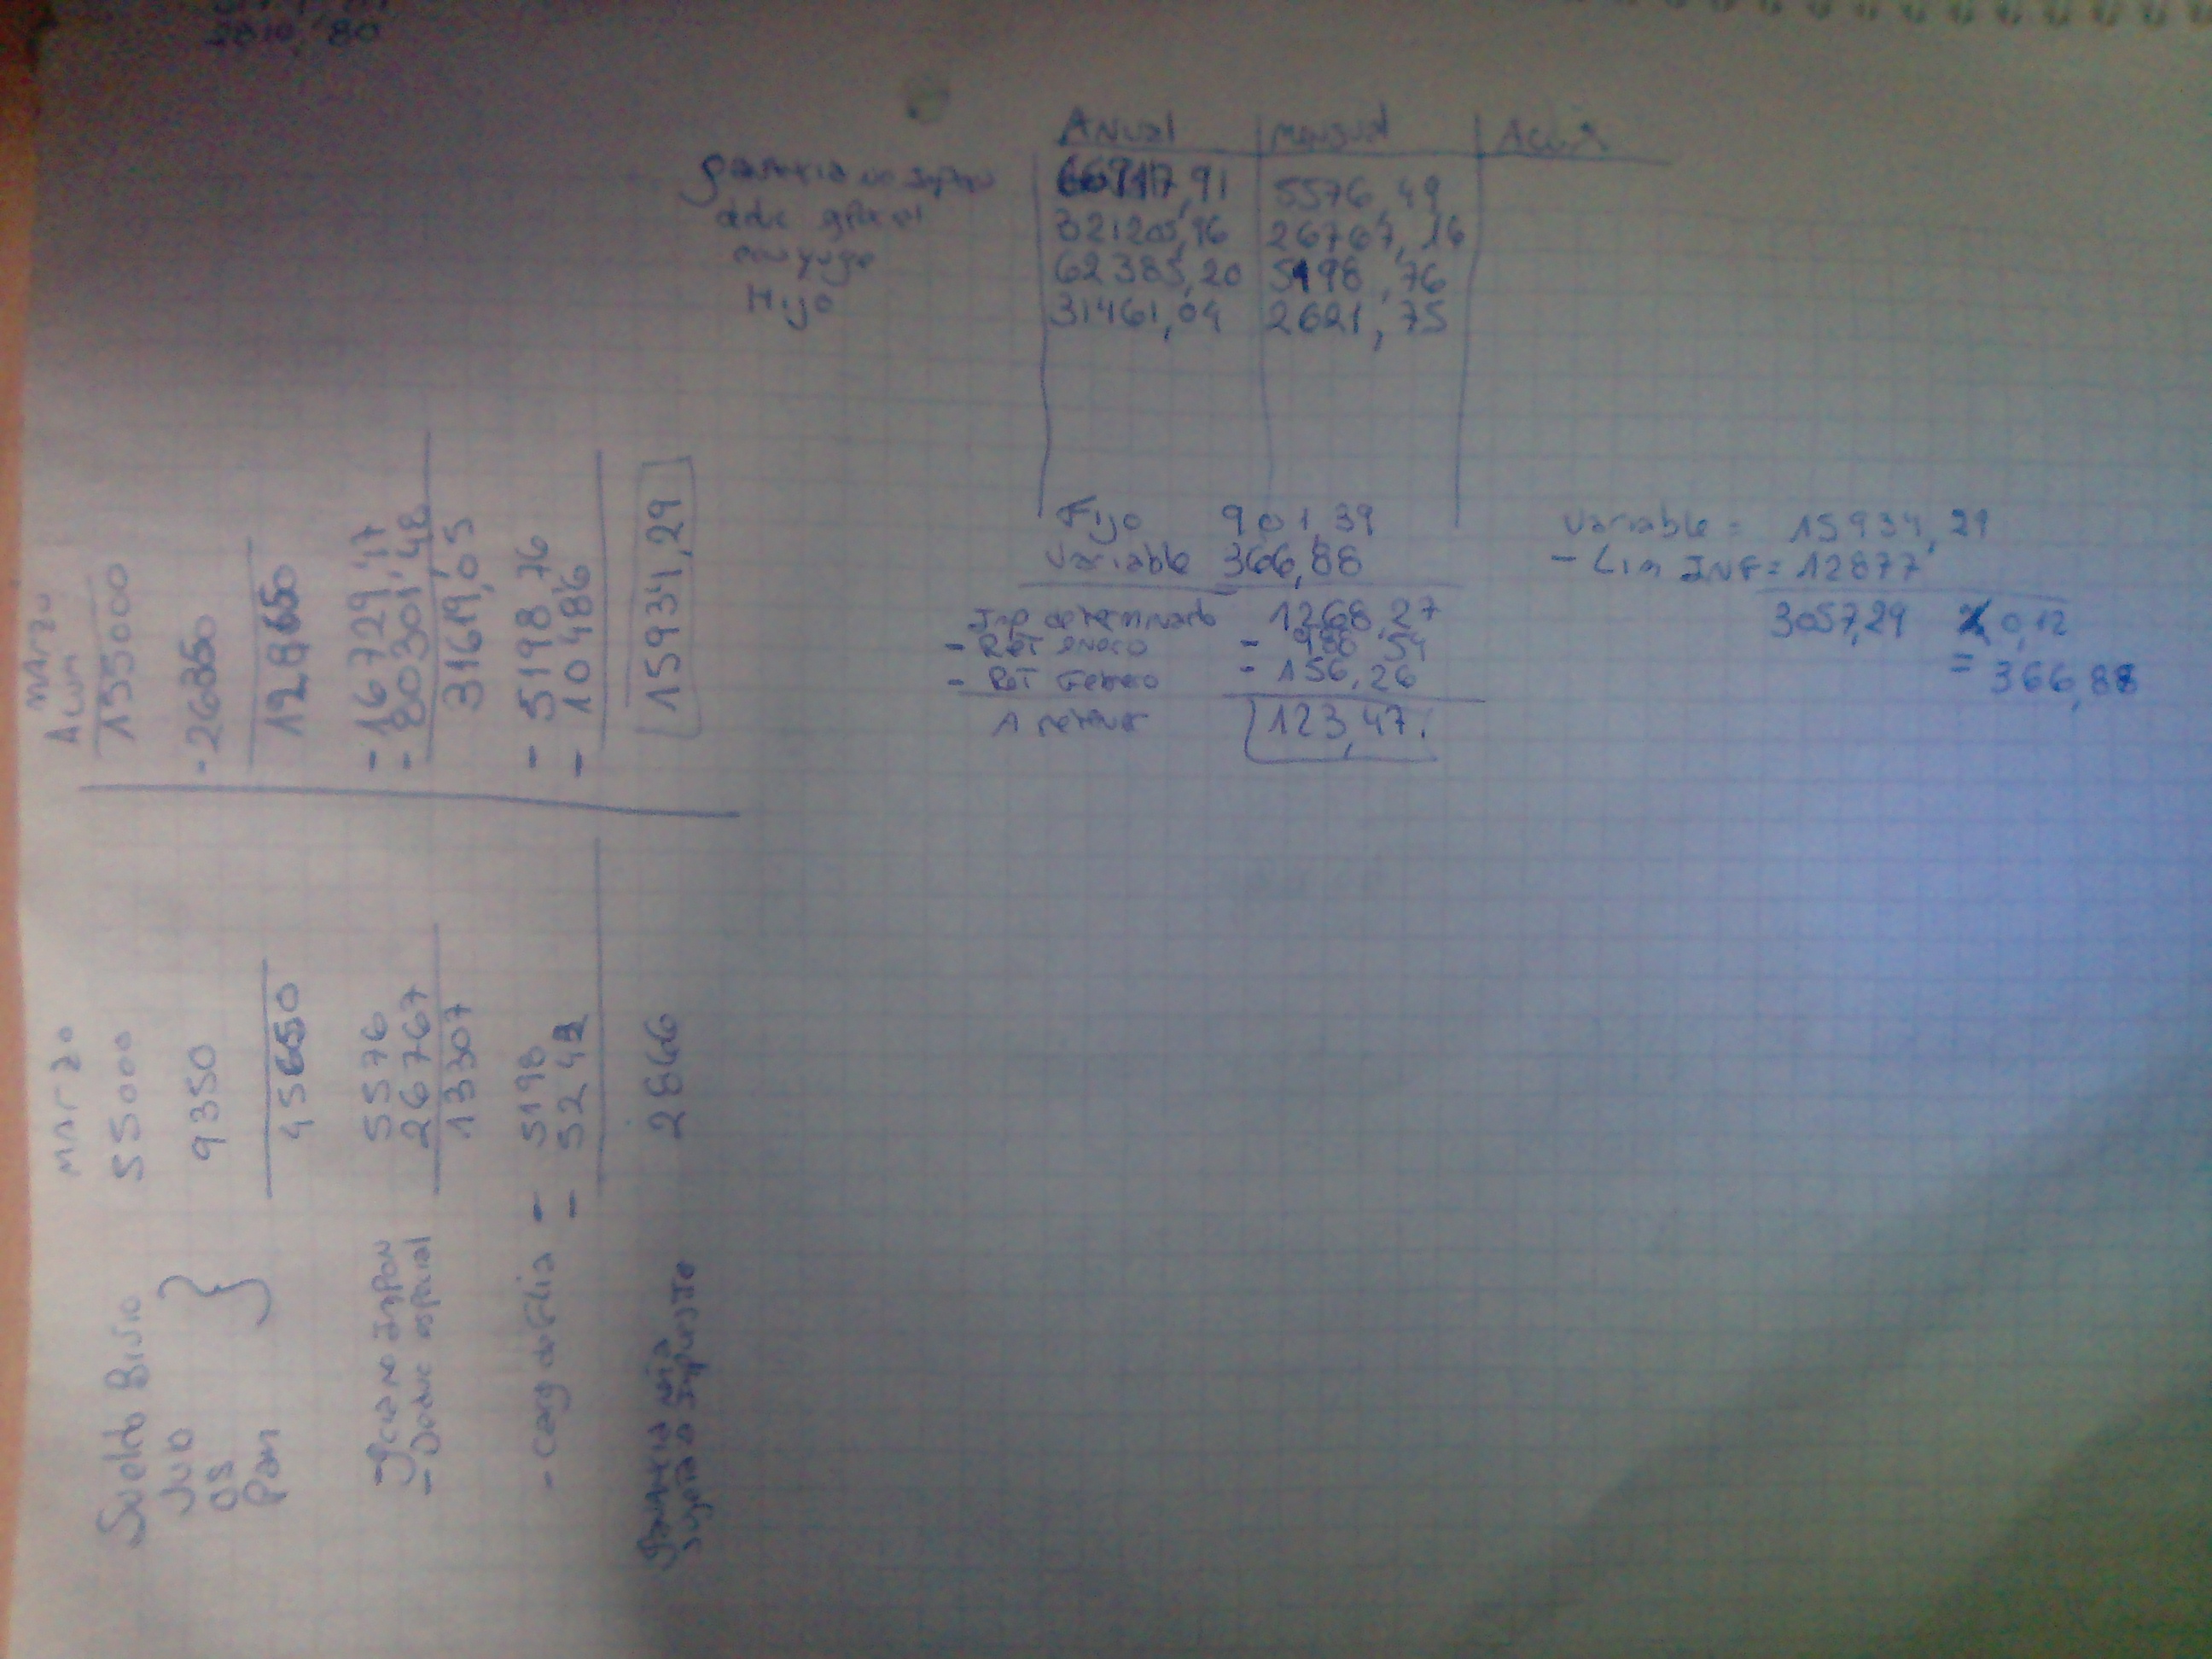 2810,80
Anual | Mensual | Acum
66917,91 | 5576,49
321205,96 | 26767,16
conyuge 62385,20 | 5198,76
Hijo 31461,09 | 2621,75
Fijo 901,39
Variable 366,88
Imp determinado 1268,27
- Ret enero - 988,54
- Ret Febrero - 156,26
A retener 123,47.
Variable = 15934,29
- Lim INF = 12877
3057,29 x 0,12
= 366,88
Marzo | Marzo Acum
Sueldo Bruto 55000 | 155000
Jub
OS
Pam } 9350 | - 26350
45650 | 128650
- gcia no impon 5576 | - 16729,47
- Deduc especial 26767 | - 80301,48
13307 | 31619,05
- Carg de Flia - 5198 | - 5198,76
- 5242 | - 10486
Ganancia neta
sujeta a impuesto 2866 | 15934,29